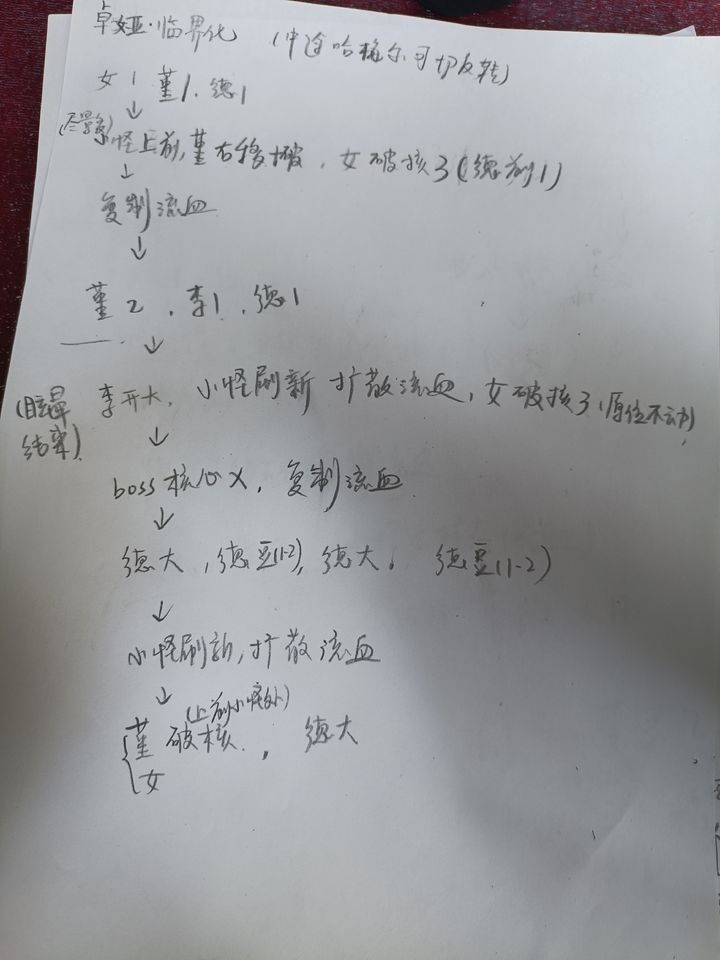 卓娅·临界化 (中途哈梅尔可切反转)
女1 堇1. 德1
↓
怪上前, 堇右移破, 女破核3 (德前1)
↓
复制流血
↓
堇2, 李1, 德1
↓
(眩晕结束) 李开大, 小怪刷新 扩散流血, 女破核3 (原位不动)
↓
boss核心x, 复制流血
↓
德大, 德豆(1-2), 德大, 德豆(1-2)
↓
小怪刷新, 扩散流血
↓
(上前小怪处)
堇 破核, 德大
女